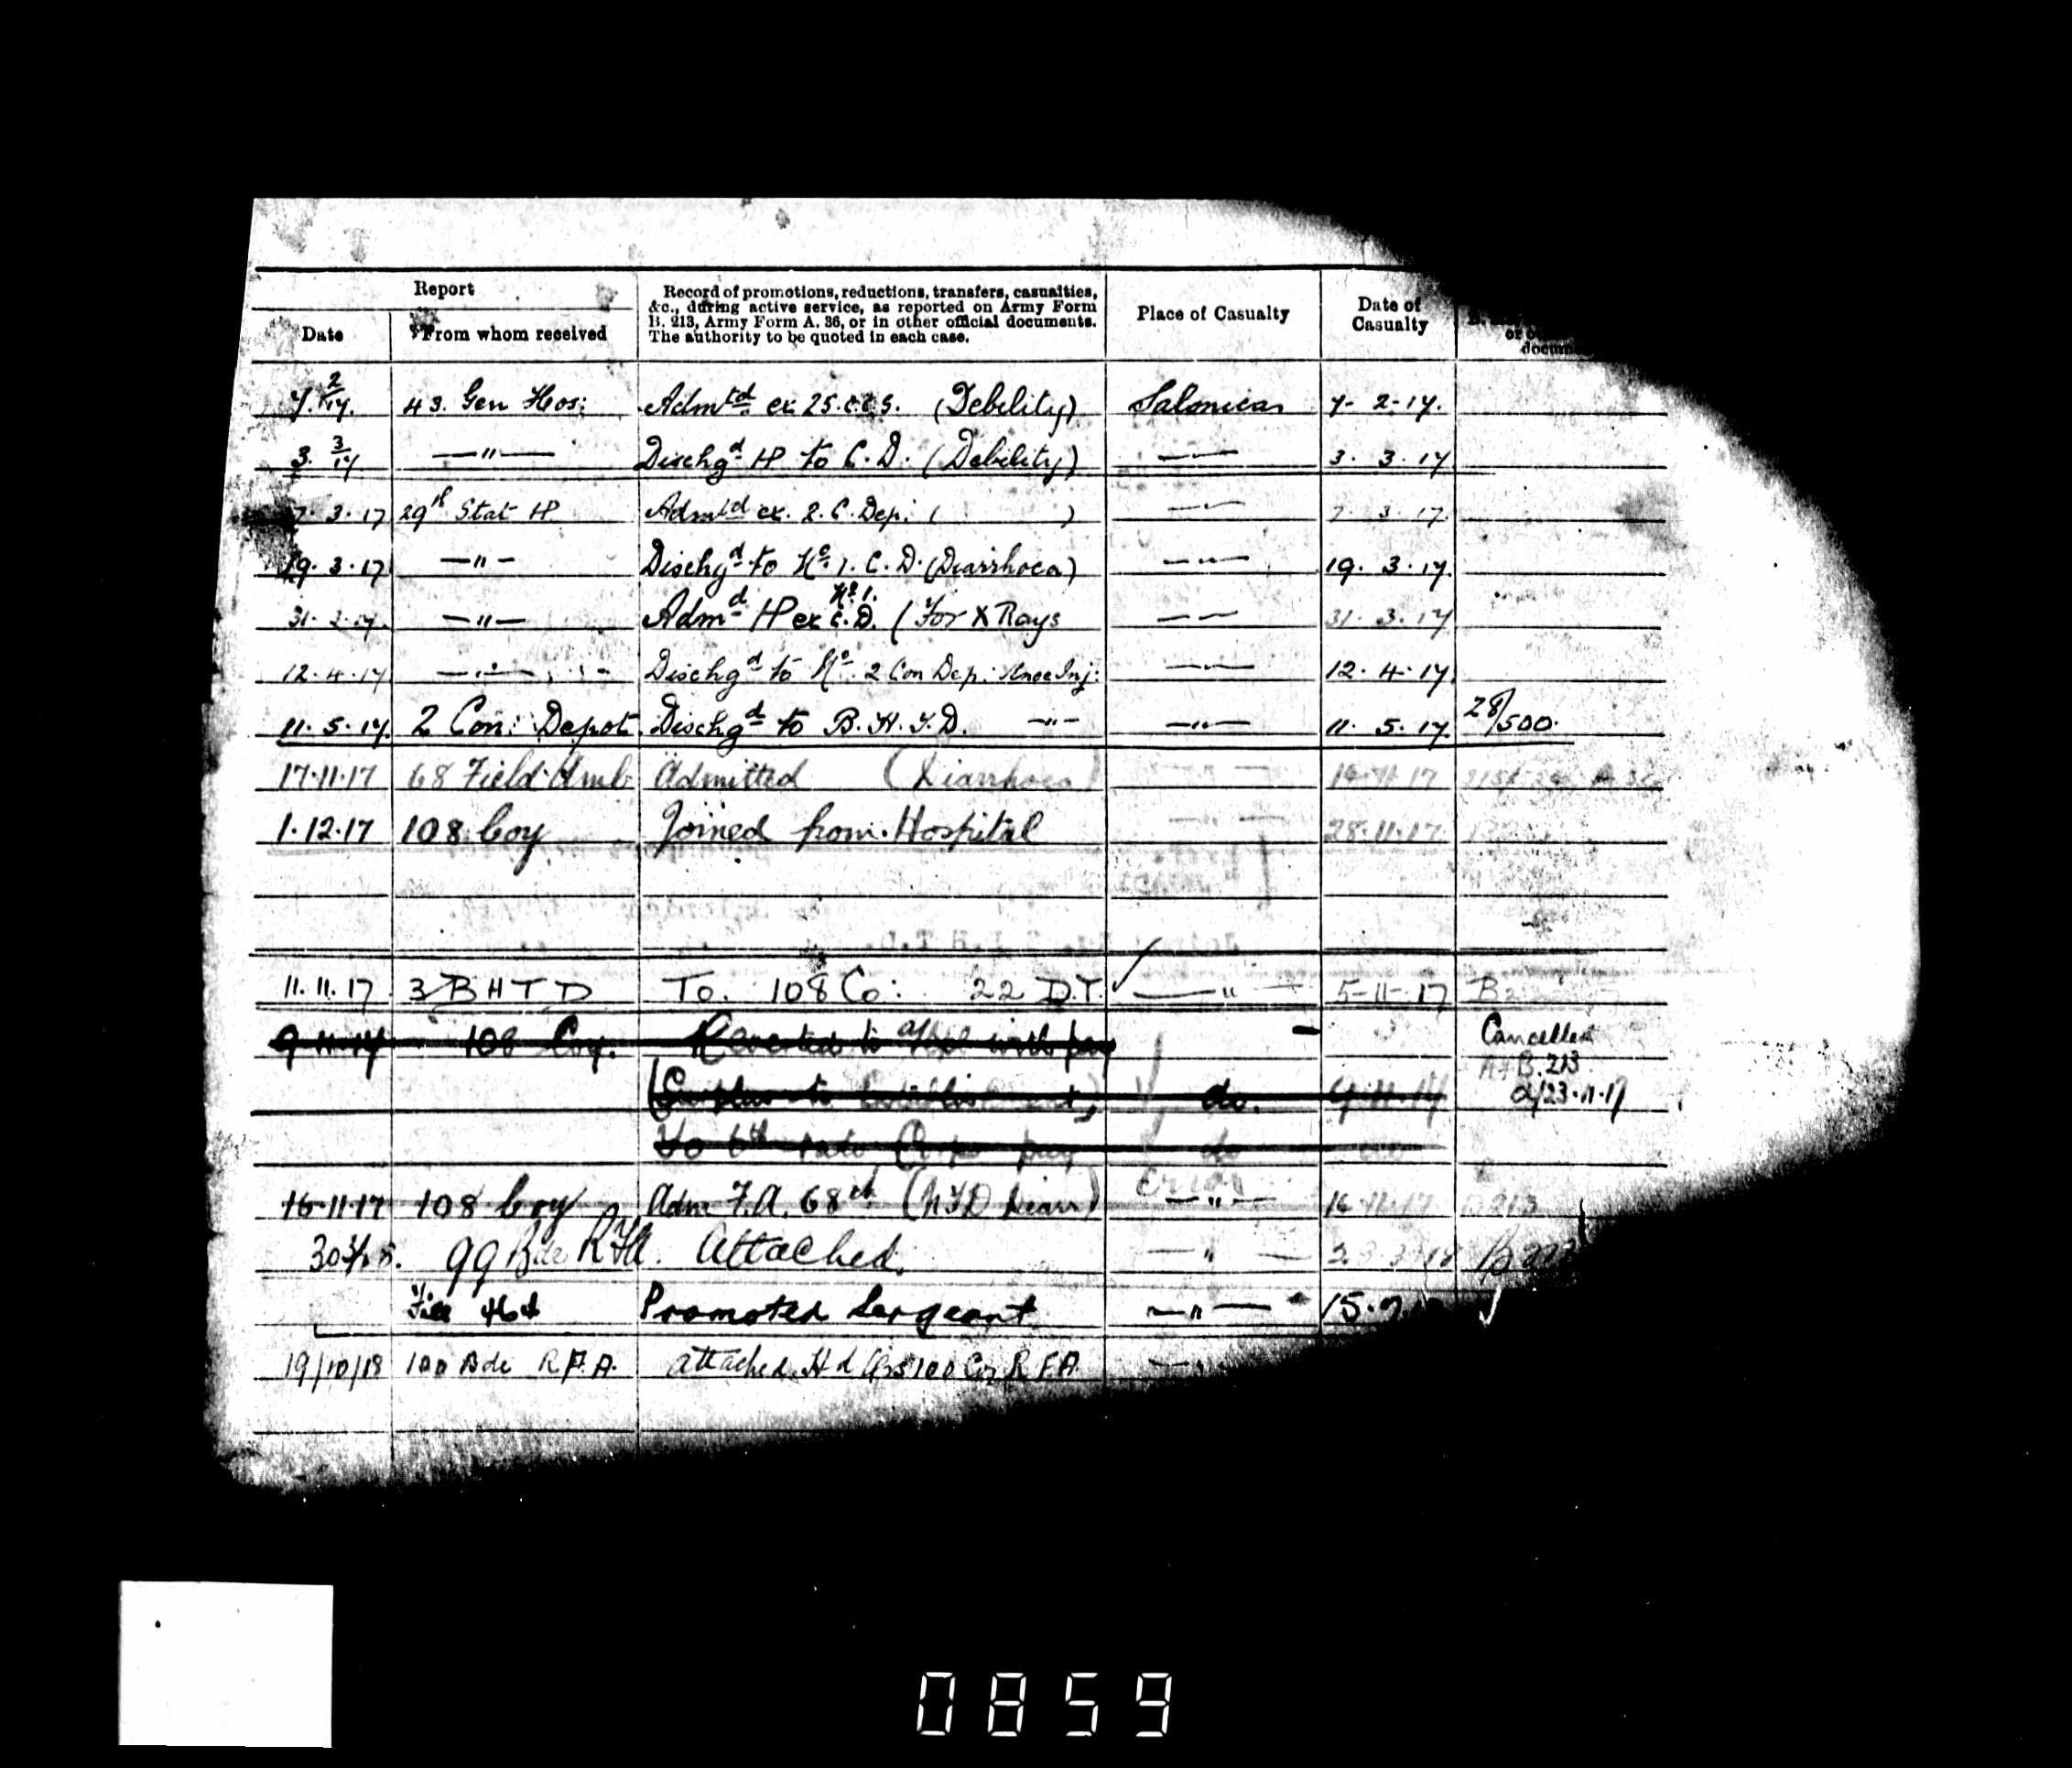 Report
Record of promotions, reductions, transfers, casualties,
&c., during active service, as reported on Army Form
B. 213, Army Form A. 36, or in other official documents.
The authority to be quoted in each case.
Place of Casualty
Date of
Casualty
Date
From whom received
docum
7. 2/17. 43. Gen Hos: Admtd ex 25.C.C.S. (Debility) Salonica 7- 2-17.
3. 3/17 —"— Dischgd H to C.D. (Debility) —"— 3. 3. 17
7. 3. 17 29th Stat H Admtd ex. 2. C. Dep: ( ) —"— 7. 3. 17.
19. 3. 17 —"— Dischgd to No. 1. C.D. (Diarrhoea) —"— 19. 3. 17.
No. 1.
31. 3. 17. —"— Admd H ex C.D. (For X Rays —"— 31. 3. 17
12. 4. 17 —"— Dischgd to No. 2 Con Dep: Knee Inj: —"— 12. 4. 17
11. 5. 17. 2 Con: Depot Dischgd to B.H.T.D. —"— —"— 11. 5. 17. 28/500.
17.11.17 68 Field Amb Admitted (Diarrhoea) —"— 16.11.17
1.12.17 108 Coy Joined from Hospital —"— 28.11.17.
11. 11. 17 3 B H T D To. 108 Co: 22 D.T. —"— 5-11-17
9 11 17 108 Coy. Reverted to with pay Cancelled
(Surplus to establishment) do. 9.11.17 B. 213
d/23.11.17
To 6th rate Corps pay do
Error
16-11-17 108 Coy Adm F.A. 68th (NYD Diarr) —"— 16.11.17 B213
30 3/18. 99 Bde RFA. Attached. —"— B.213
Promoted Sergeant —"— 15.
19/10/18 100 Bde R.F.A. attached Hd Qrs 100 R.F.A.
0859